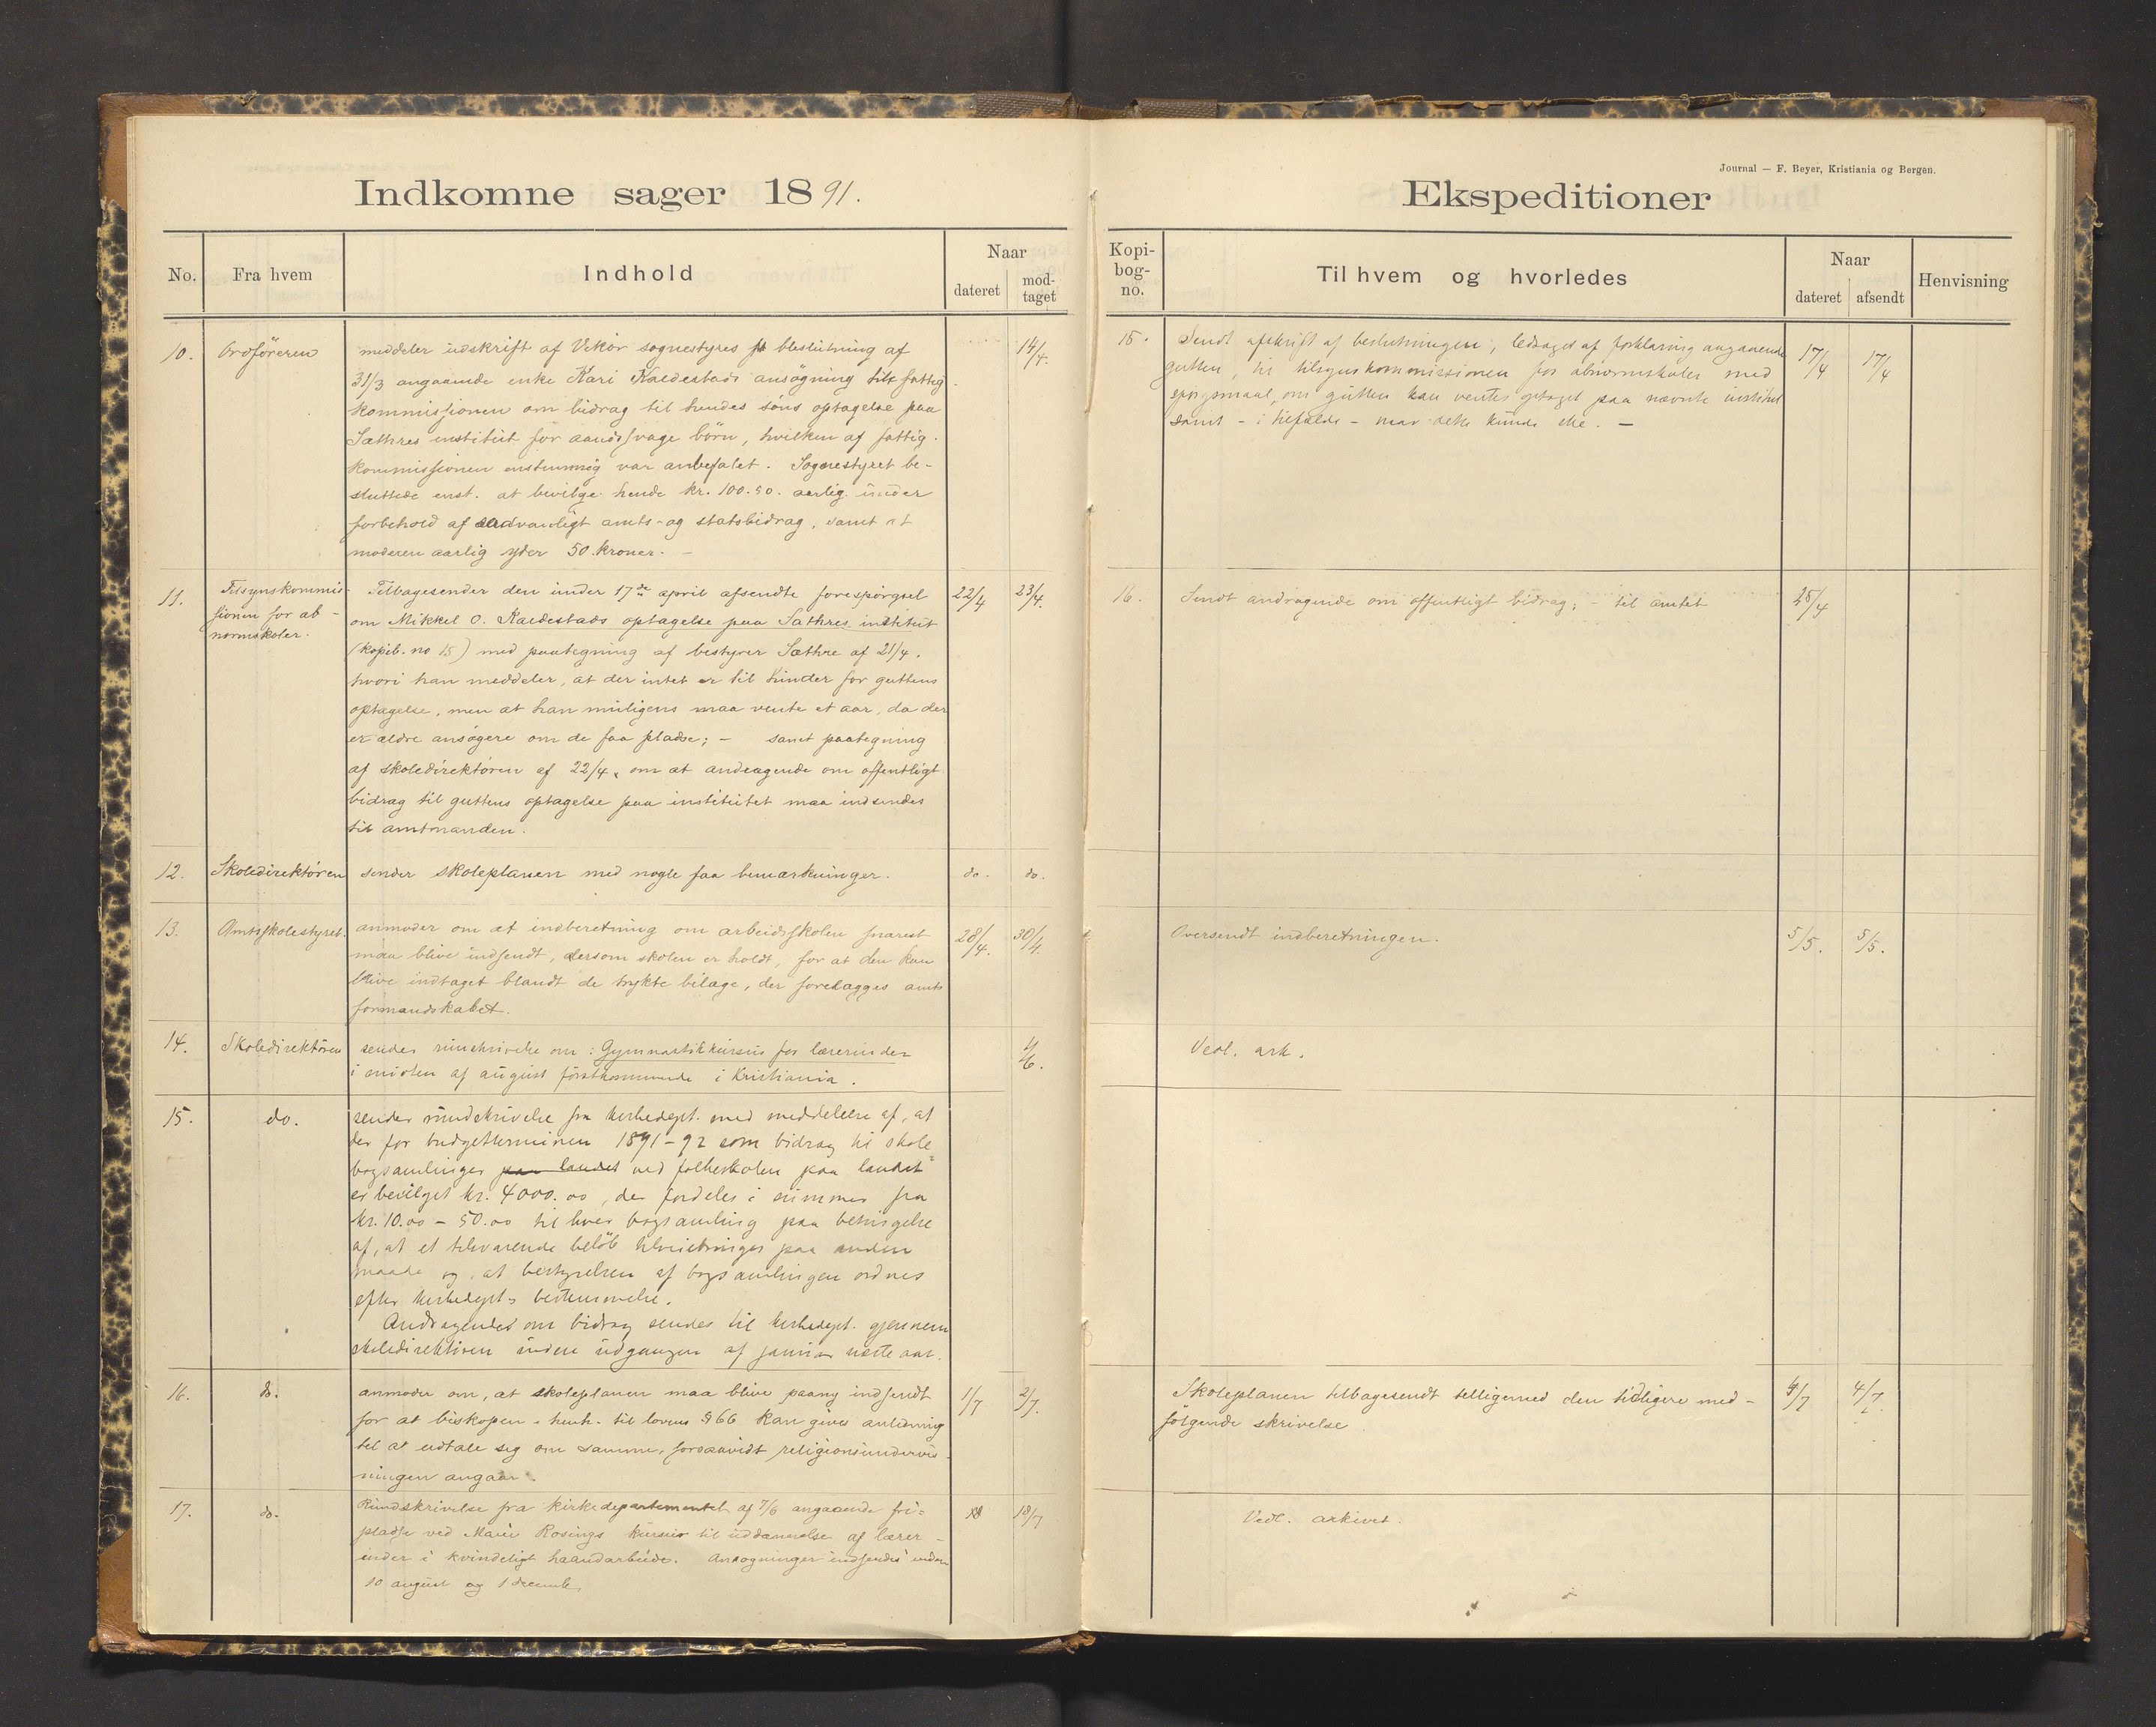 Indkomne sager 1891.
No.
Fra hvem
Indhold
Naar
dateret
mod-
taget
10.
Ordføreren
meddeler udskrift af Vikør sognestyres beslutning af
31/3 angaaende enke Kari Kaldestads ansøgning til fattig-
kommissionen om bidrag til hendes søns optagelse paa
Sæthres institut for aandssvage børn, hvilken af fattig-
kommissionen enstemmig var anbefalet. Sognestyret be-
sluttede enst. at bevilge hende kr. 100.50. aarlig under
forbehold af sædvanligt amts- og statsbidrag, samt at
moderen aarlig yder 50 kroner. -
14/4.
11.
Tilsynskommis-
sionen for ab-
normskoler.
Tilbagesender den under 17de april afsendte forespørgsel
om Mikkel O. Kaldestads optagelse paa Sæthres institut
(kopib. no 15) med paategning af bestyrer Sæthre af 21/4,
hvori han meddeler, at der intet er til hinder for guttens
optagelse, men at han muligens maa vente et aar, da der
er ældre ansøgere om de faa pladse; - samt paategning
af skoledirektøren af 22/4, om at andragende om offentligt
bidrag til guttens optagelse paa institutet maa indsendes
til amtmanden.
22/4
23/4.
12.
Skoledirektøren
sender skoleplanen med nogle faa bemærkninger.
do.
do.
13.
Amtsskolestyret.
anmoder om at indberetning om arbeidsskolen snarest
maa blive indsendt, dersom skolen er holdt, for at den kan
blive indtaget blandt de trykte bilage, der forelægges amts
formandskabet.
28/4.
30/4.
14.
Skoledirektøren
sender rundskrivelse om: Gymnastikkursus for lærerinder
i midten af august førstkommende i Kristiania.
4/6.
15.
do.
sender rundskrivelse fra kirkedept. med meddelelse af, at
der for budgetterminen 1891-92 som bidrag til skole-
bogsamlinger paa landet ved folkeskolen paa landet
er bevilget kr. 4000.00, der fordeles i summer fra
kr. 10.00 - 50.00 til hver bogsamling paa betingelse
af, at et tilsvarende beløb tilveiebringes paa anden
maade og, at bestyrelsen af bogsamlingen ordnes
efter kirkedept.s bestemmelse.
Andragender om bidrag sendes til kirkedept. gjennem
skoledirektøren inden udgangen af januar næste aar.
16.
do.
anmoder om, at skoleplanen maa blive paany indsendt
for at biskopen - henh. til lovens § 66 kan gives anledning
til at udtale sig om samme, forsaavidt religionsundervis-
ningen angaar.
1/7
2/7.
17.
do.
Rundskrivelse fra kirkedepartementet af 7/6 angaaende fri-
pladse ved Marie Rosings kursus til uddannelse af lærer-
inder i kvindeligt haandarbeide. Ansøgninger indsendes inden
10 august og 1 december
18/7
Journal — F. Beyer, Kristiania og Bergen.
Ekspeditioner
Kopi-
bog-
no.
Til hvem og hvorledes
Naar
dateret
afsendt
Henvisning
15.
Sendt afskrift af beslutningen, ledsaget af forklaring angaaende
gutten, til tilsynskommissionen for abnormskoler med
spørgsmaal, om gutten kan ventes optaget paa nævnte institut
samt - i tilfælde - naar dette kunde ske. -
17/4
17/4
16.
Sendt andragende om offentligt bidrag; - til amtet
25/4
Oversendt indberetningen.
5/5.
5/5.
Vedl. ark.
Skoleplanen tilbagesendt tilligemed den tidligere med-
følgende skrivelse
4/7
4/7.
Vedl. arkivet.